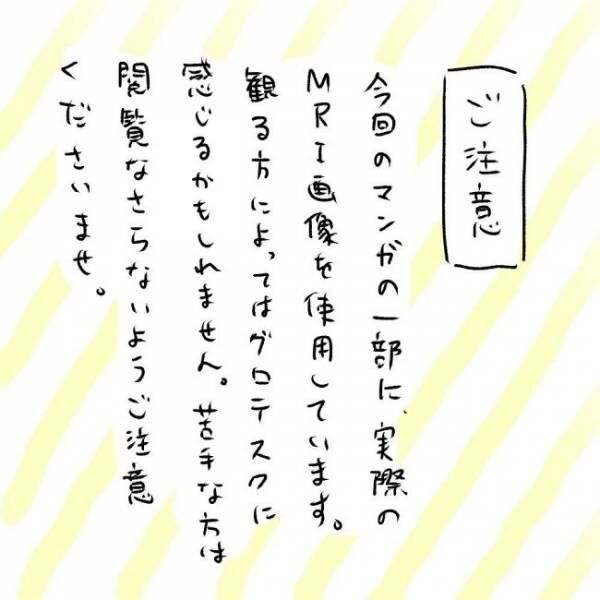 ご注意
今回のマンガの一部に、実際の
MRI画像を使用しています。
観る方によってはグロテスクに
感じるかもしれません。苦手な方は
閲覧なさらないようご注意
くださいませ。